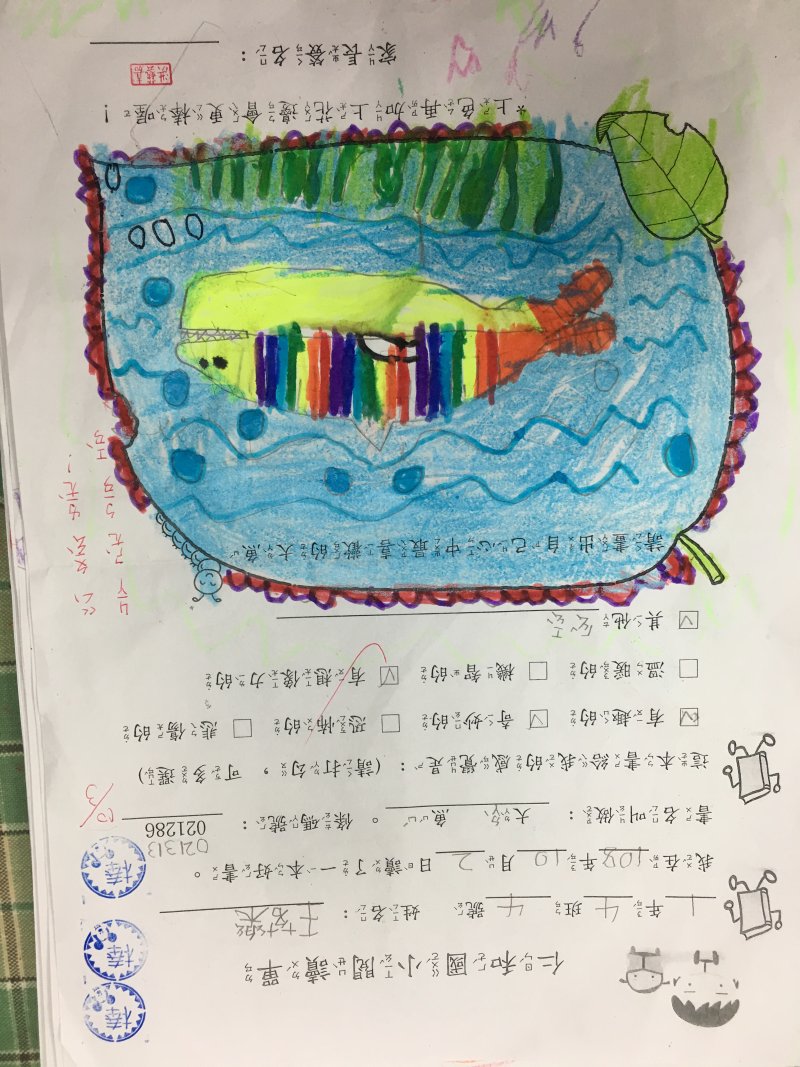 仁和國小閱讀單
1年4班4號 姓名：
我在108年10月2日讀了一本好書。
021313
書名叫做：大ㄉㄚˋ魚 。條碼號：021286
10/3
這本書給我的感覺是：(請打勾，可多選)
☑有趣的 ☑奇妙的 □恐怖的 □悲傷的
□溫暖的 □機智的 ☑有想像力的
☑其他
請畫出自己心中最喜歡的大魚
*上色再加上花邊會更棒喔！
家長簽名：
棒
棒
棒